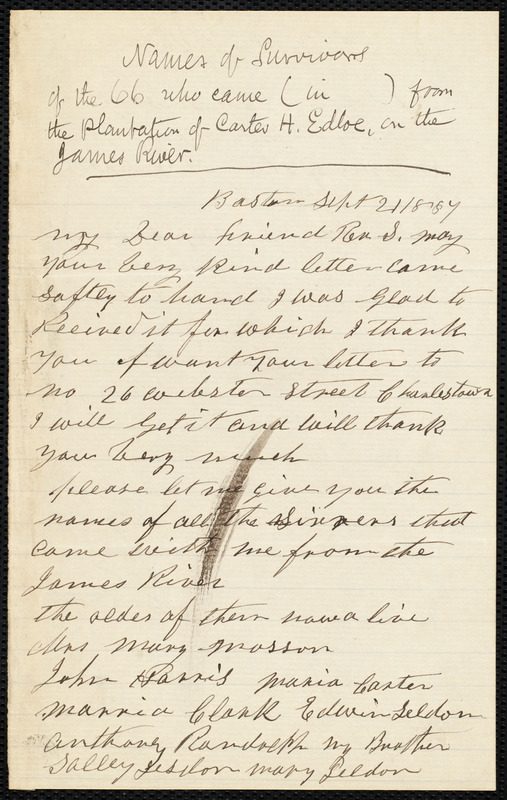 Names of Survivors
of the 66 who came (in ) from
the plantation of Carter H. Edloe, on the
James River.
Boston Sept 21/87
my Dear friend Rev S. may
your very kind letter came
saftly to hand I was Glad to
Recived it for which I thank
you I want your letter to
no 26 webster Street Charlestown
I will Get it and will thank
you very much
please let me give you the
names of all the that
came with me from the
James River
the oldes of them now a live
Mrs Mary Masson
John Harris maria Carter
marria Clark Edwin Seldon
anthoney Randolph my Brother
Salley mary Seldon